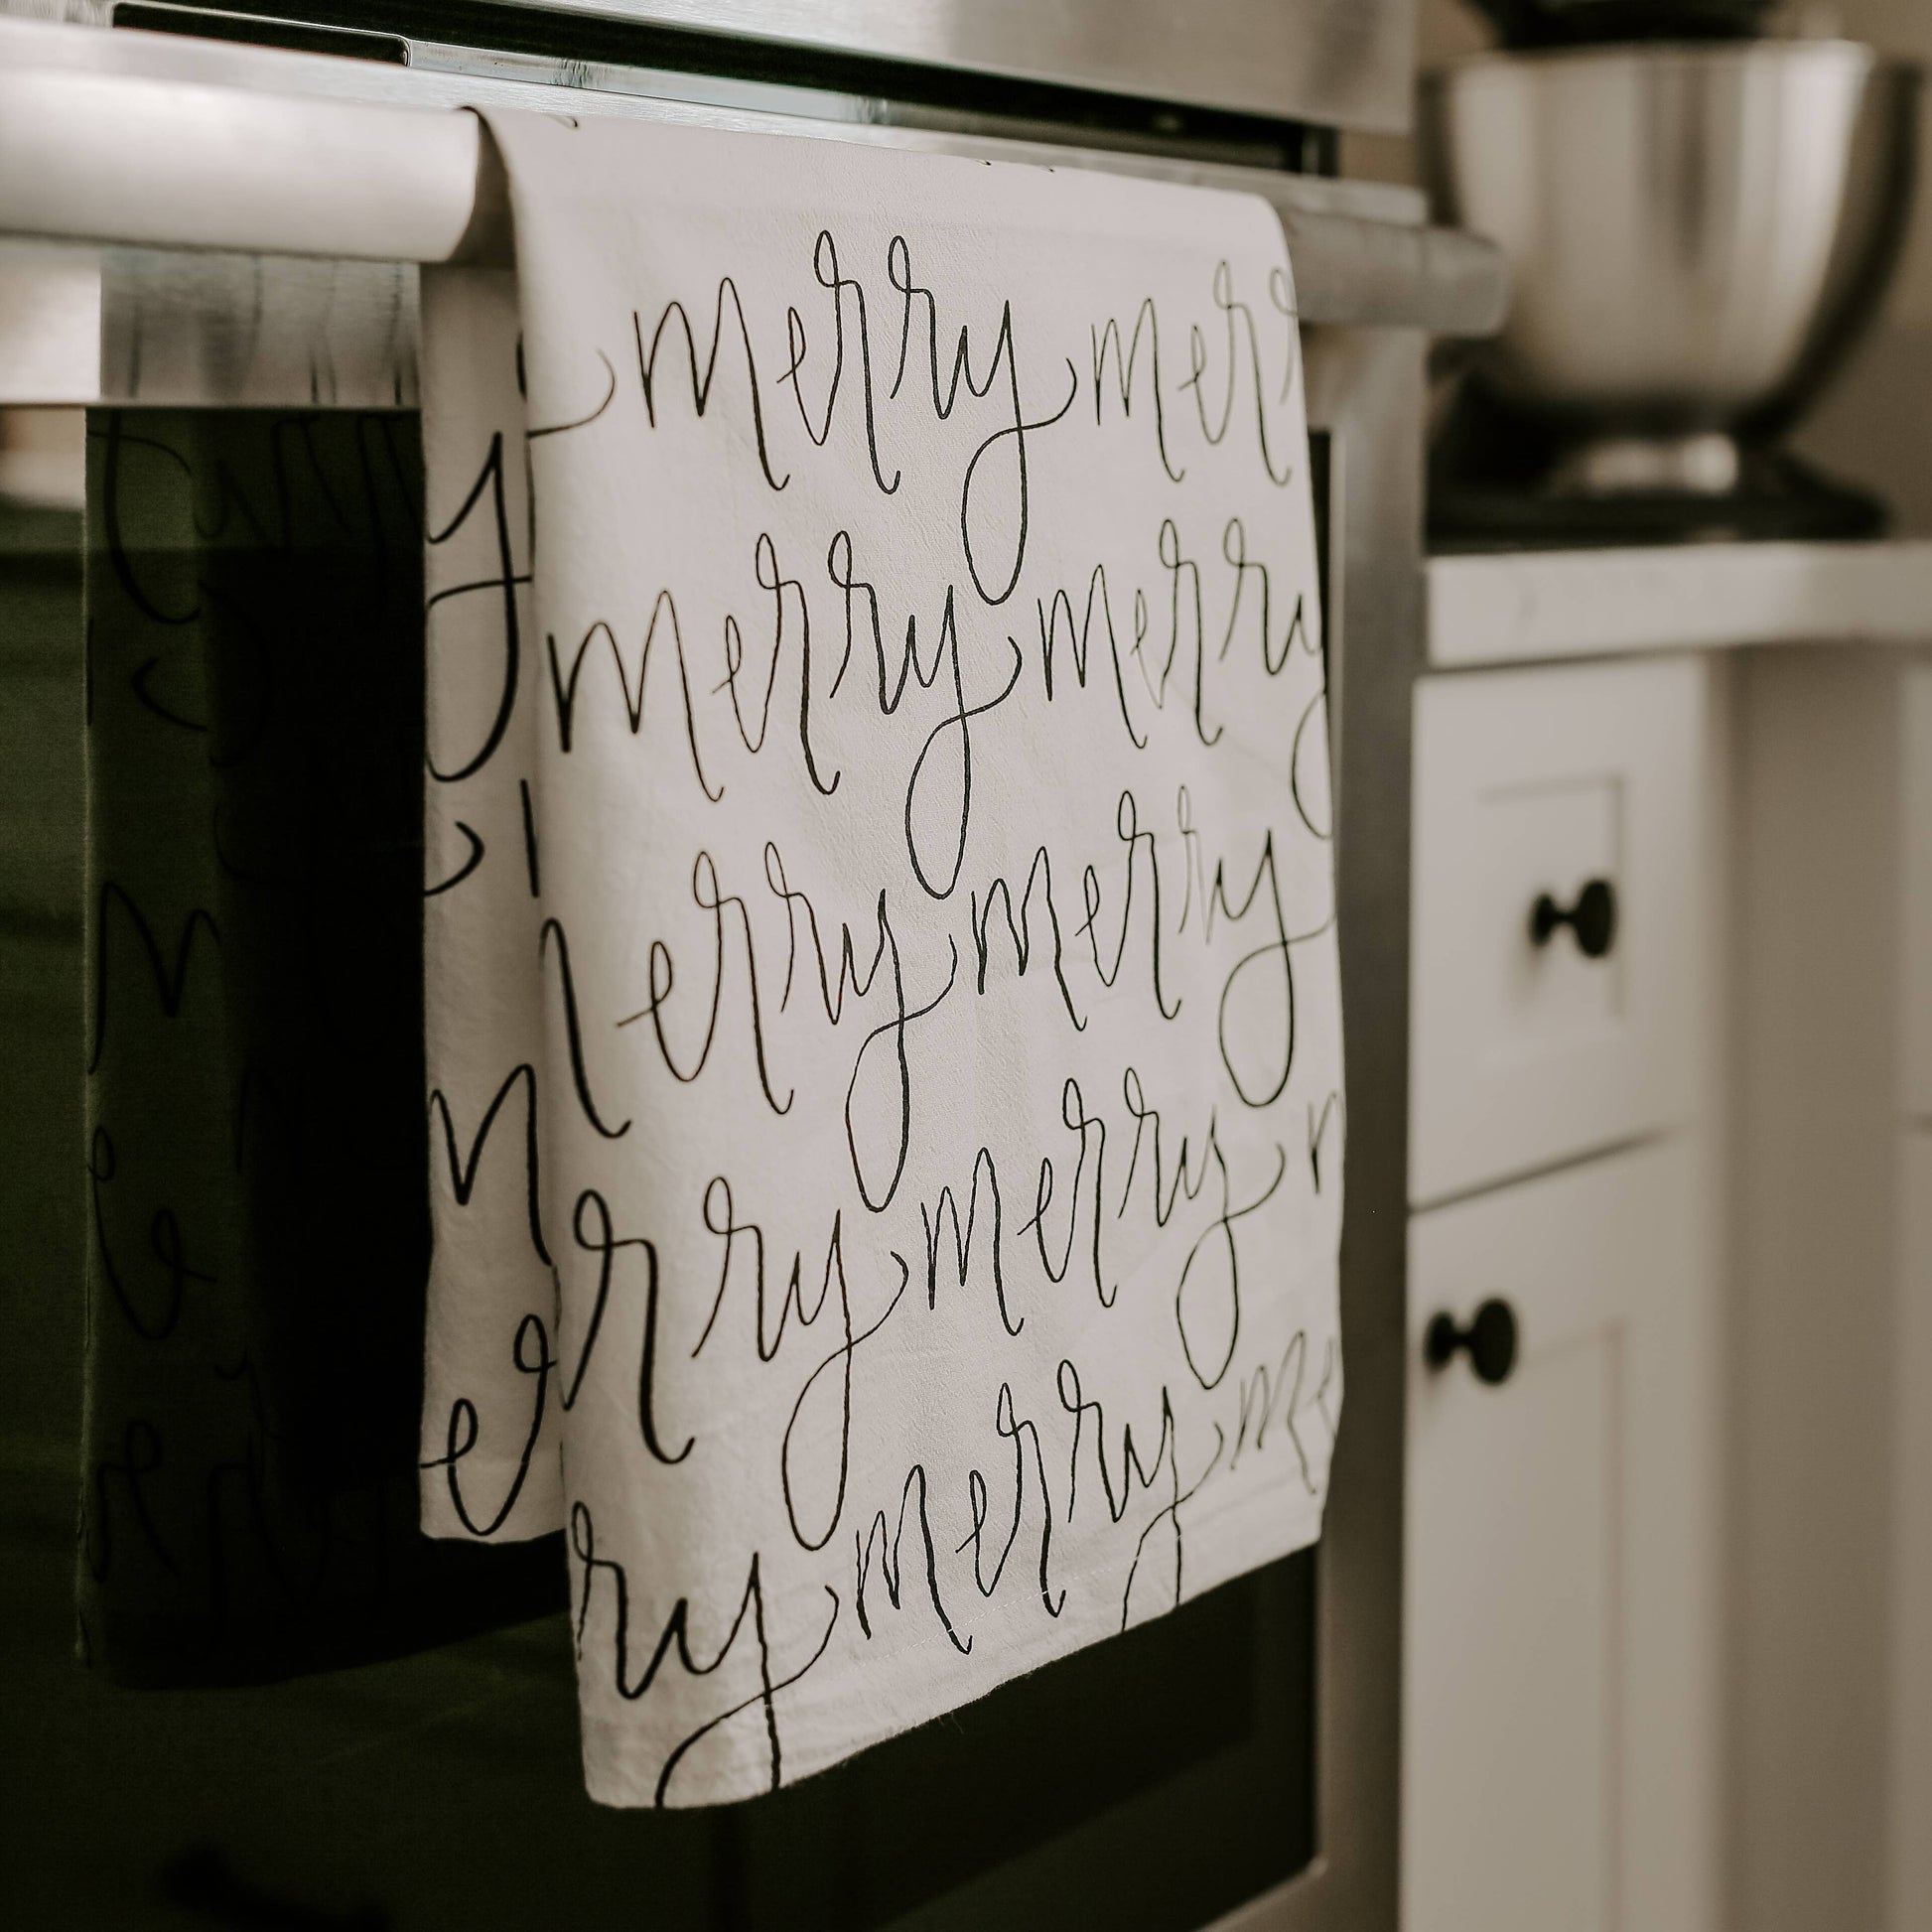 merry merr
merry merry
merry merry
erry merry m
ry merry me